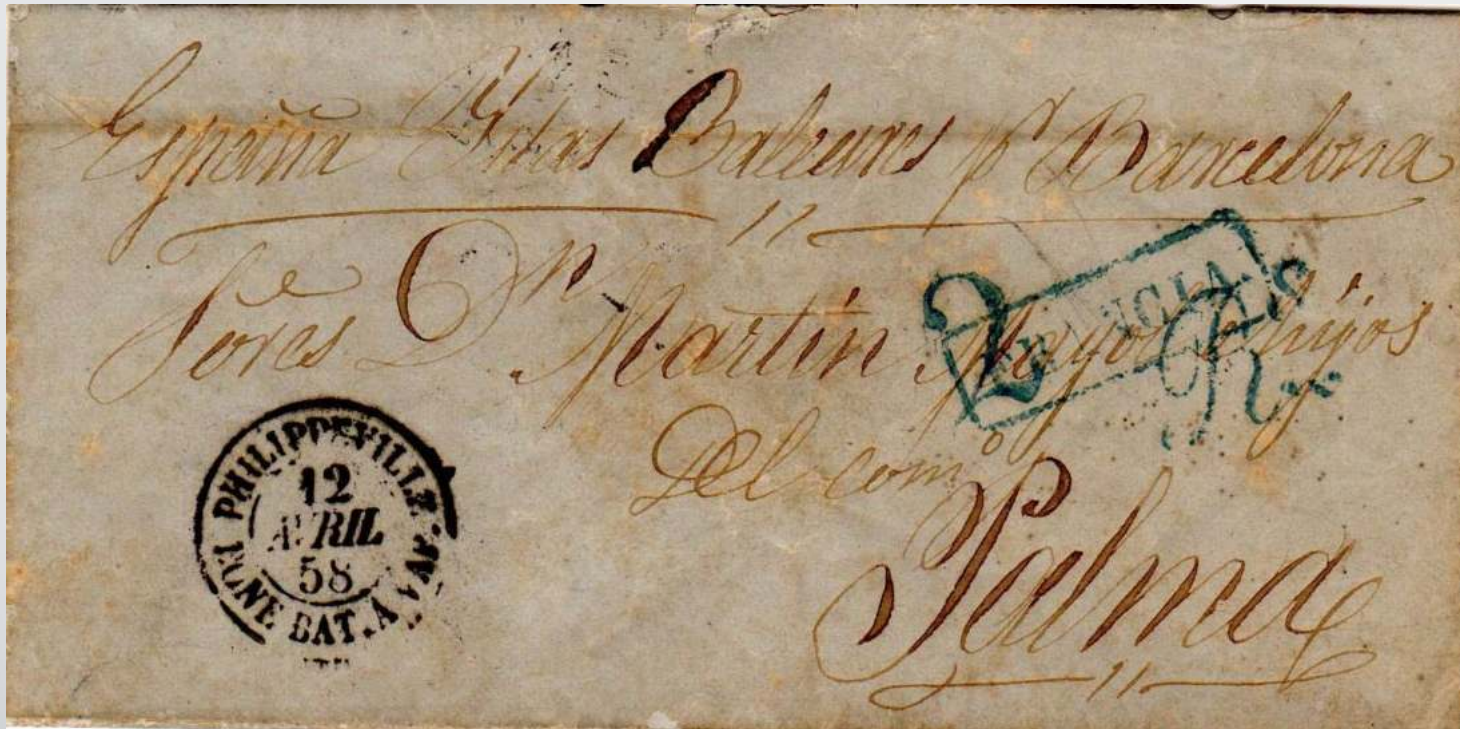 España Yslas Baleares pr Barcelona
Sores Dn Martin Mayol e hijos
Del como
Palma
FRANCIA
2 Rs
PHILIPPEVILLE
12
AVRIL
58
BONE BAT. A VAP.